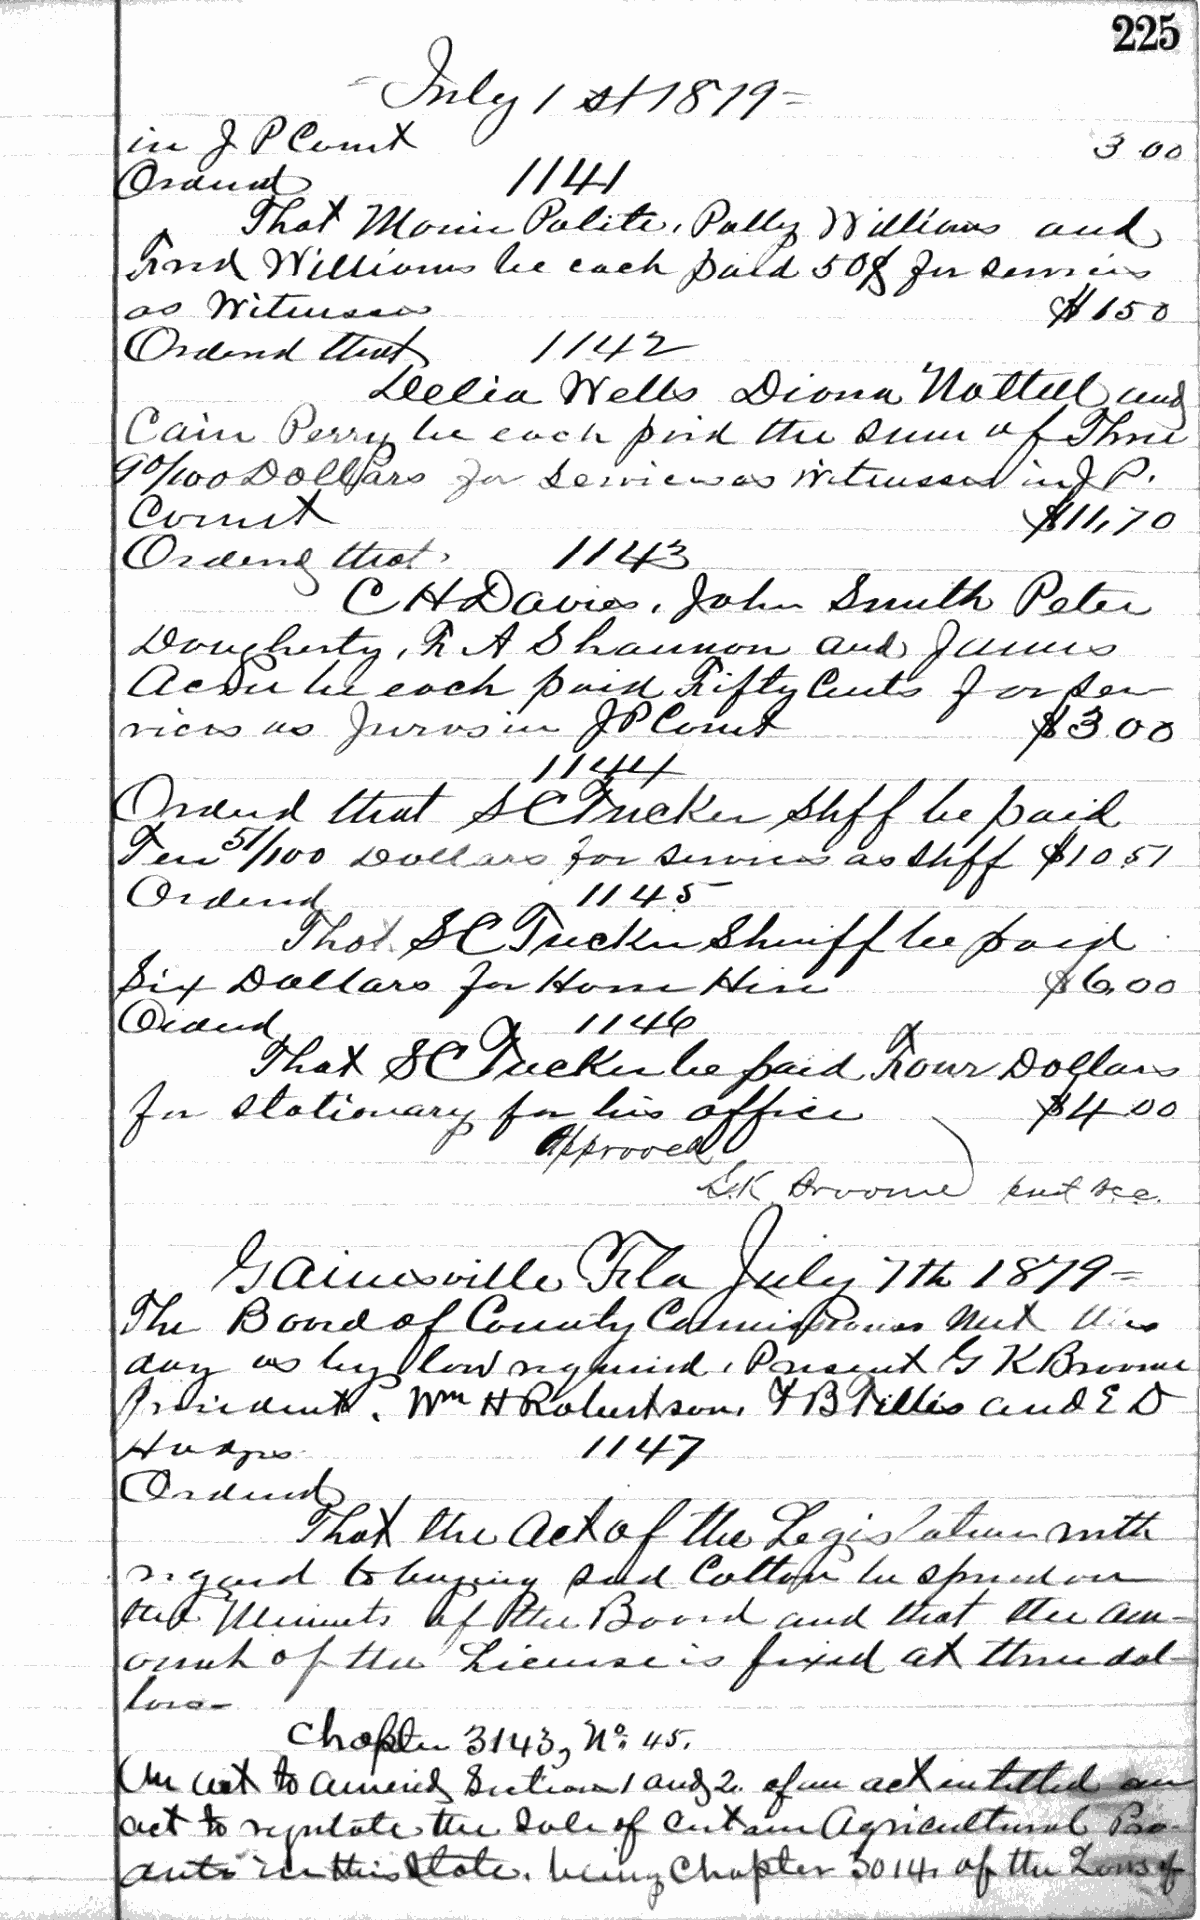 225
- July 1st 1879 -
in J P Court 3 00
Ordered 1141
That Polite, Polly Williams and
Fred Williams be each paid 50¢ for services
as Witnesses $1 50
Ordered that 1142
Delia Wells Diana Nattell and
Cain Perry be each paid the sum of Three
90/100 Dollars for Services as Witnesses in J P.
Court $11,70
Ordered that 1143
C H Davies, John Smith Peter
Dougherty, F A Shannon and James
be each paid Fifty Cents for ser
vices as Jurors in J P Court $3.00
1144
Ordered that S C Tucker Shff be paid
Ten 51/100 Dollars for services as Shff $10.51
Ordered 1145
That S C Tucker Sheriff be paid
Six Dollars for Horse Hire $6,00
Ordered 1146
That S C Tucker be paid Four Dollars
for Stationary for his office $4 00
Approved
G.K. Broome
Gainesville Fla July 7th 1879 -
The Board of County Commissioners met this
day as by law required, Present G K Broome
President, Wm H Robertson, F B Tillis and E D
Hodges 1147
Ordered
That the Act of the Legislature with
regard to buying seed Cotton be spread on
the Minuets of the Board and that the am-
ount of the License is fixed at three dol-
lars -
Chapter 3143, No. 45.
An act to amend Section 1 and 2. of an act intitled an
act to regulate the Sale of certain Agricultural Pro-
ducts in this State, being Chapter 3014, of the Laws of